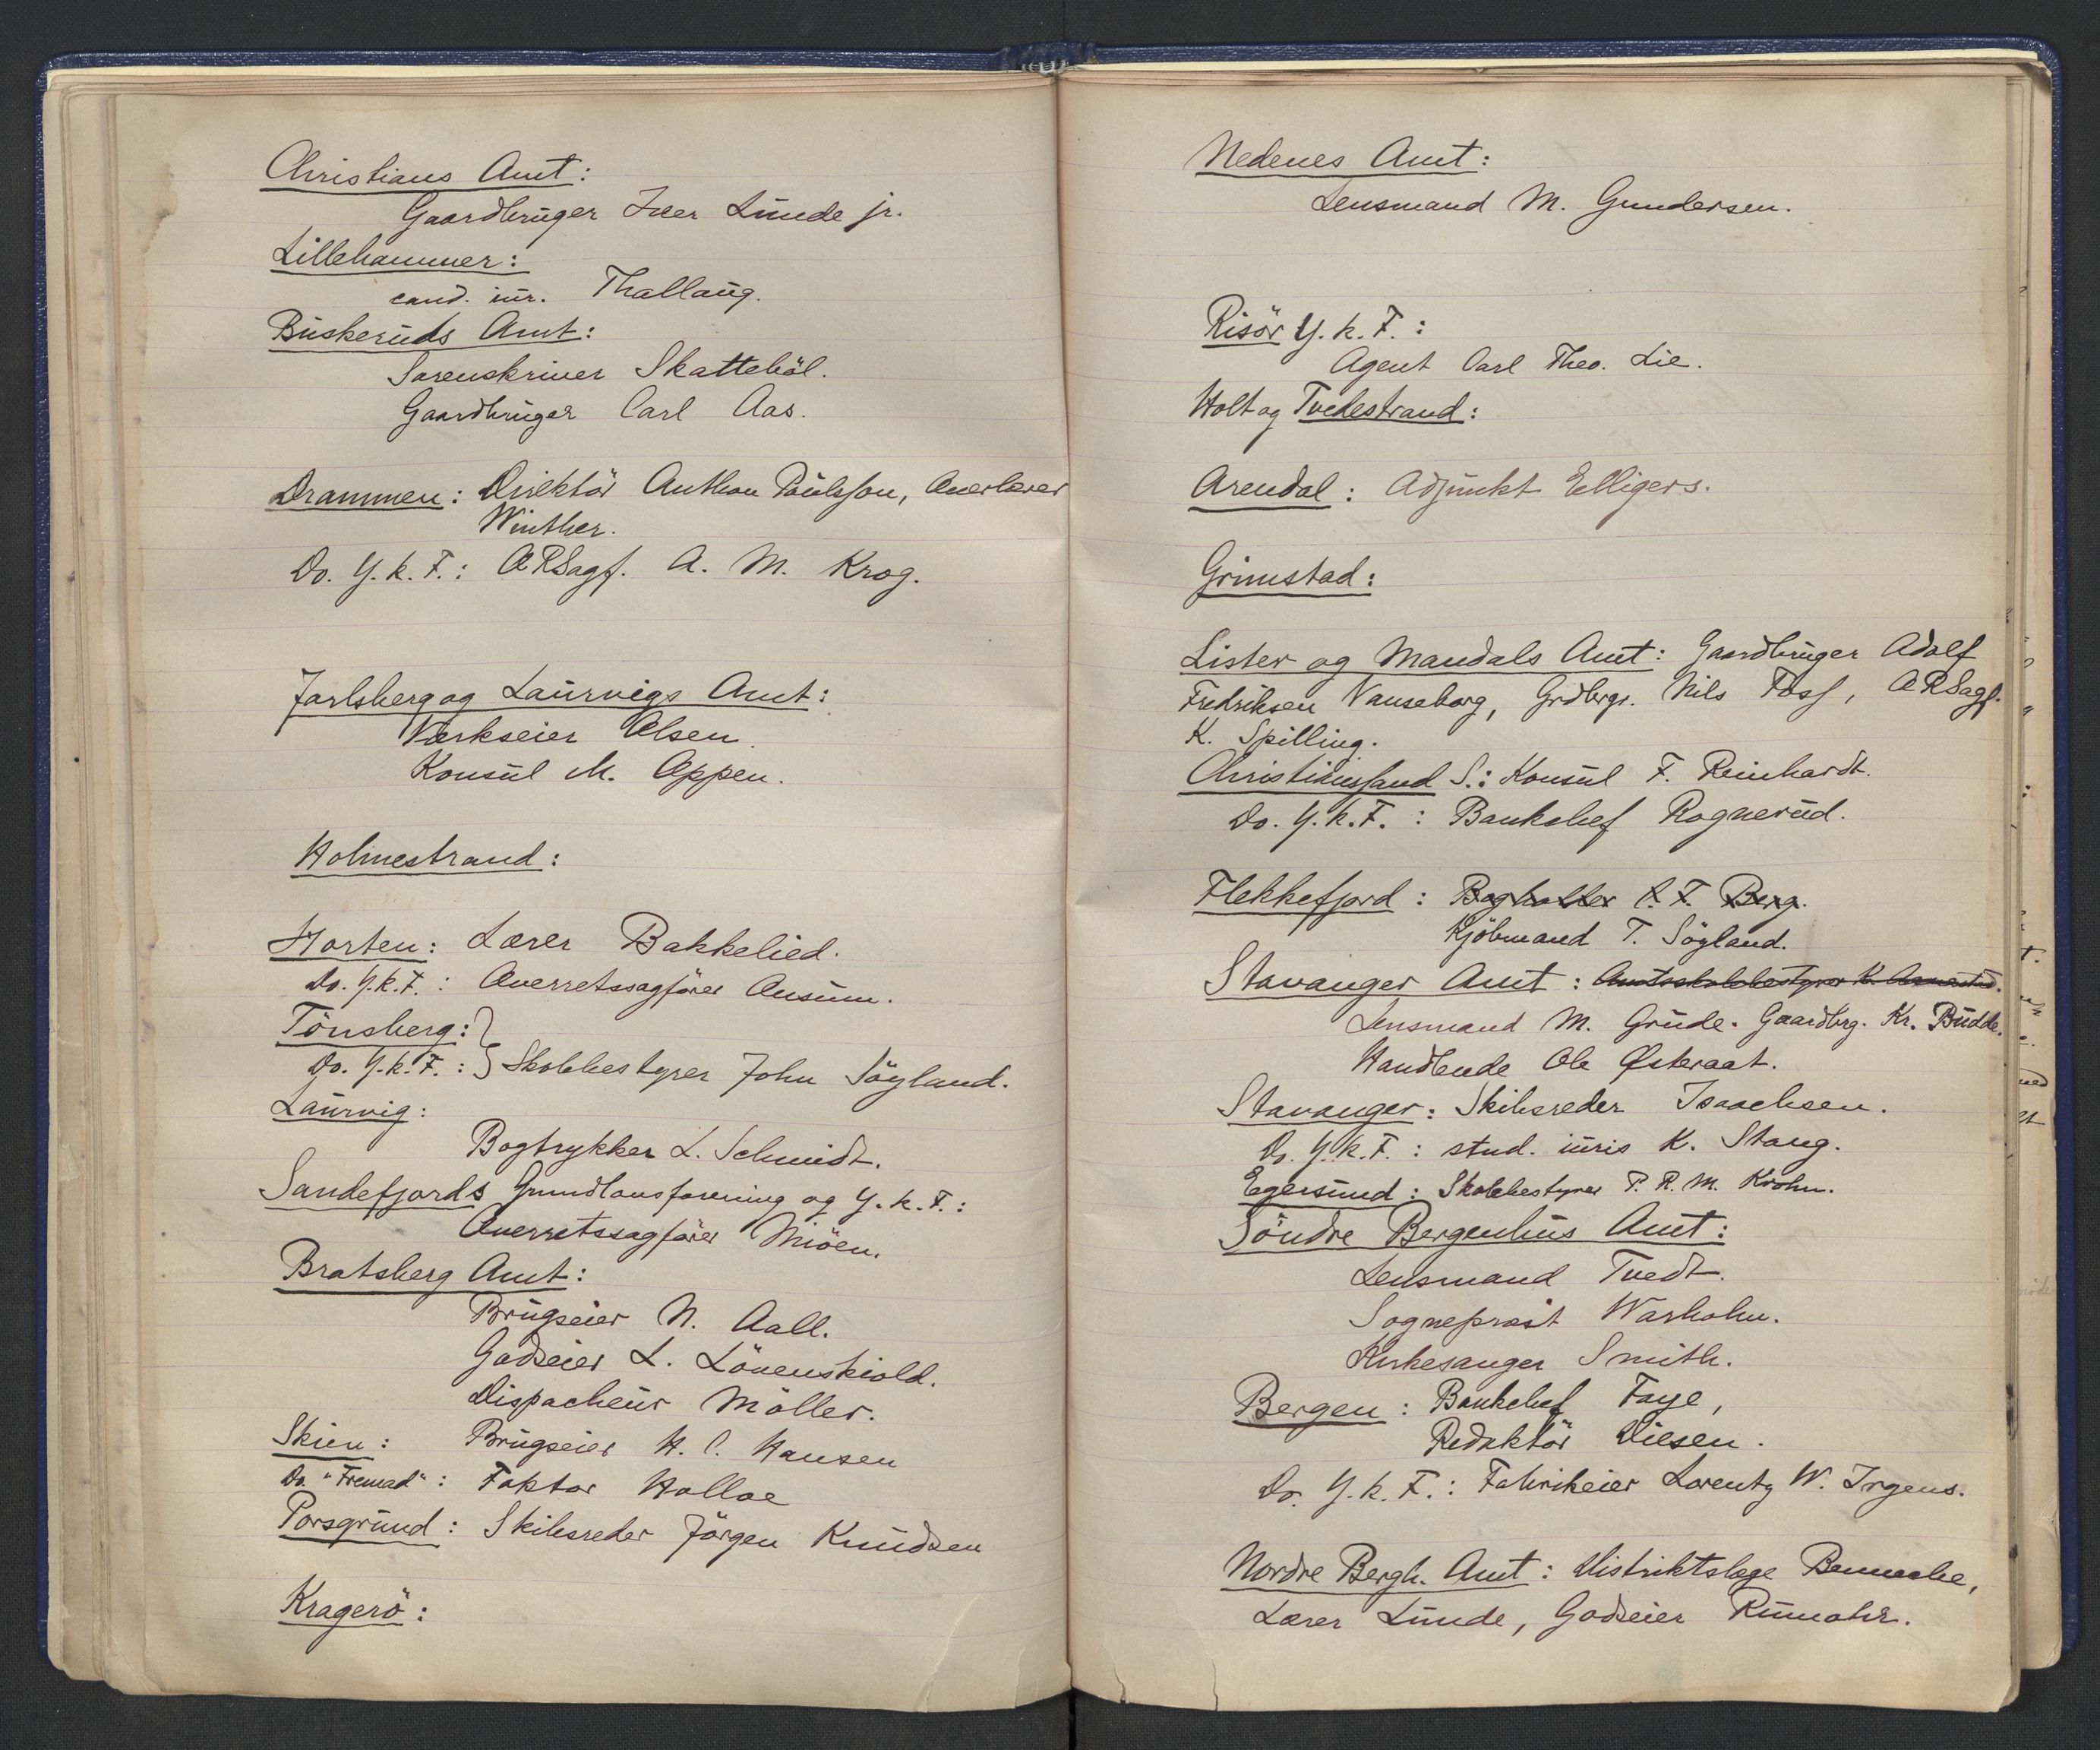 Christians Amt:
Gaardbruger Iver Lunde jr.
Lillehammer:
cand. iur. Thallaug.
Buskeruds Amt:
Sorenskriver Skatteböl.
Gaardbruger Carl Aas.
Drammen: Direktör Anthon Poulsson, Overlærer
Winther.
Do. Y. k. F.: ORSagf. A. M. Krog.
Jarlsberg og Laurvigs Amt:
Værkseier Olsen.
Konsul M. Oppen.
Holmestrand:
Horten: Lærer Bakkelied.
Do. Y. k. F.: Overretssagförer Ansum.
Tönsberg:
Do. Y. k. F.: Skolebestyrer John Söyland.
Laurvig:
Bogtrykker L. Schmidt.
Sandefjords Grundlovsforening og Y. k. F.:
Overretssagförer Miöen.
Bratsberg Amt:
Brugseier N. Aall.
Godseier L. Lövenskiold.
Dispacheur Möller.
Skien: Brugseier H. C. Hansen
Do. "Fremad": Faktor Holloe
Porsgrund: Skibsreder Jörgen Knudsen
Kragerö:
Nedenes Amt:
Lensmand M. Gundersen.
Risör Y. k. F.:
Agent Carl Theo. Lie.
Holt og Tvedestrand:
Arendal: Adjunkt Elligers.
Grimstad:
Lister og Mandals Amt: Gaardbruger Adolf
Fredriksen Vanseborg, Grdbrgr. Nils Foss, ORSagf.
K. Spilling.
Christianssand S.: Konsul F. Reinhardt.
Do. Y. k. F.: Bankchef Rognerud.
Flekkefjord: Bogholder C. F. Berg.
Kjöbmand T. Söyland.
Stavanger Amt: Amtsskolebestyrer K.
Lensmand M. Grude. Gaardbrg. Kr. Budde.
Handlende Ole Østeraat.
Stavanger: Skibsreder Isaachsen.
Do. Y. k. F.: stud. iuris K. Stang.
Egersund: Skolebestyrer P. R. M. Krohn.
Söndre Bergenhus Amt:
Lensmand Tvedt.
Sogneprest Warholm.
Kirkesanger Smith.
Bergen: Bankchef Faye,
Redaktör Diesen.
Do. Y. k. F.: Fabrikeier Lorentz W. Irgens.
Nordre Bergh. Amt: Distriktslæge Benneche,
Lærer Lunde, Godseier Rumohr.